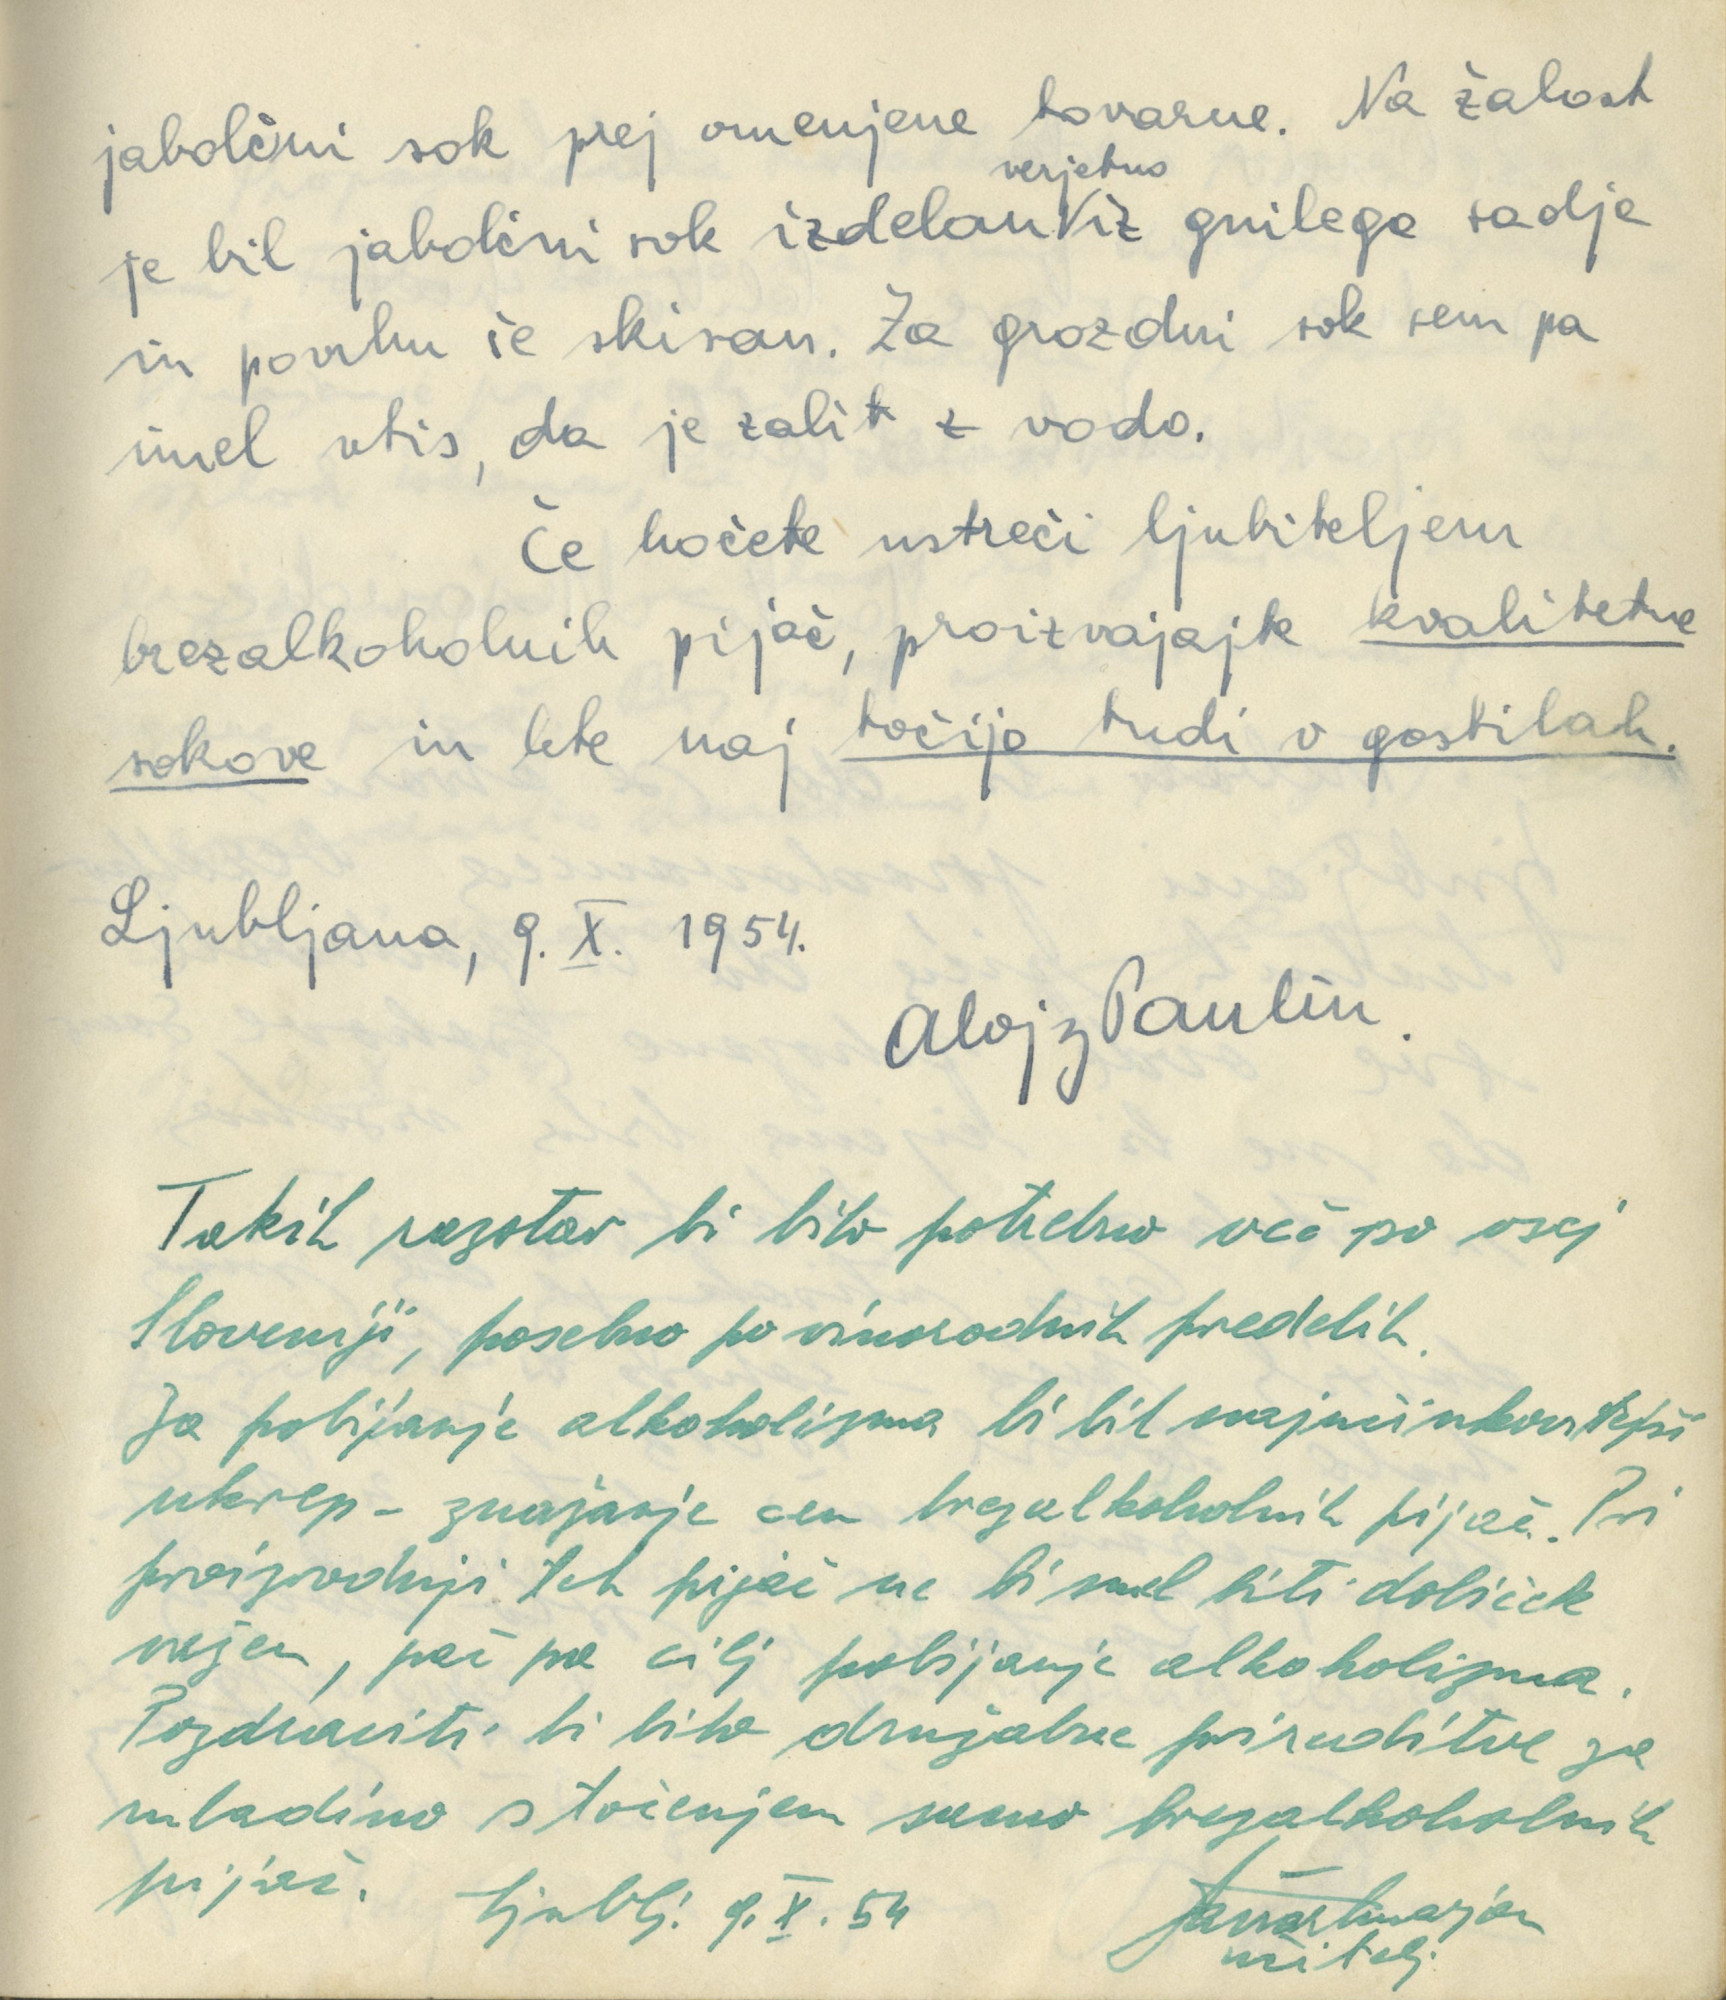 jabolčni sok prej omenjene tovarne. Na žalost
je bil jabolčni sok izdelan verjetno iz gnilega sadja
in povrhu še skisan. Za grozdni sok sem pa
imel vtis, da je zalit z vodo.
Če hočete ustreči ljubiteljem
brezalkoholnih pijač, proizvajajte kvalitetne
sokove in lete naj točijo tudi v gostilah.
Ljubljana, 9. X. 1954.
Alojz Paulin.
Takih razstav bi bilo potrebno več po vsej
Sloveniji, posebno po vinorodnih predelih.
Za pobijanje alkoholizma bi bil najučinkovitejši
ukrep - znižanje cen brezalkoholnih pijač. Pri
proizvodnji teh pijač ne bi smel biti dobiček
važen, pač pa cilj pobijanje alkoholizma.
Pozdraviti bi bilo družabne prireditve za
mladino s točenjem samo brezalkoholnih
pijač. Ljublj. 9. X. 54
Marjan
učitelj